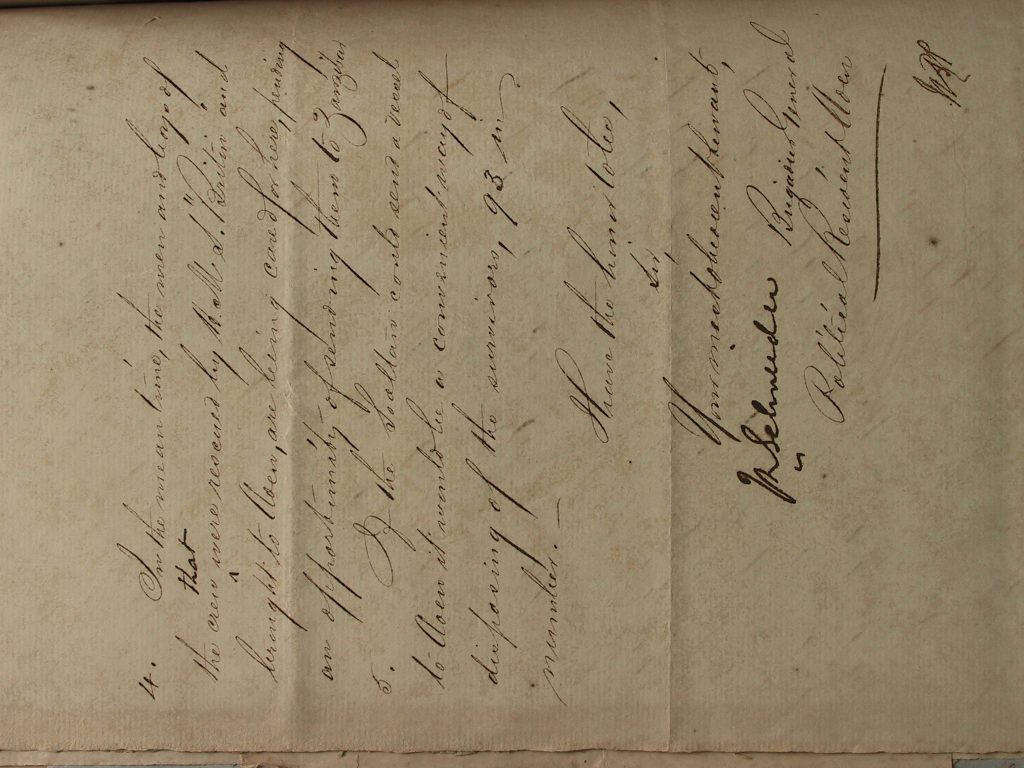 4. In the mean time, the men and boys of
the crew that were rescued by H. M. S. "Briton" and
brought to Aden, are being cared for here, pending
an opportunity of sending them to Zanzibar
5. If the Sooltan could send a vessel
to Aden it would be a convenient way of
disposing of the survivors, 93 in
number. —
I have the honor to be,
Sir,
Your most obedient servant,
Schneider Brigadier General
Political Resident Aden